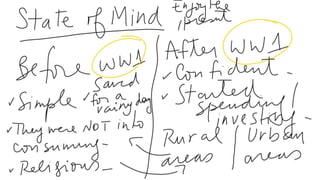 State of Mind
Enjoy the
present
Before WW1
✓ Simple
Saved
for a
rainy day
✓ They were NOT into
consuming
✓ Religious
After WW1
✓ Confident
✓ Started
spending/
investing
Rural / Urban
areas / areas